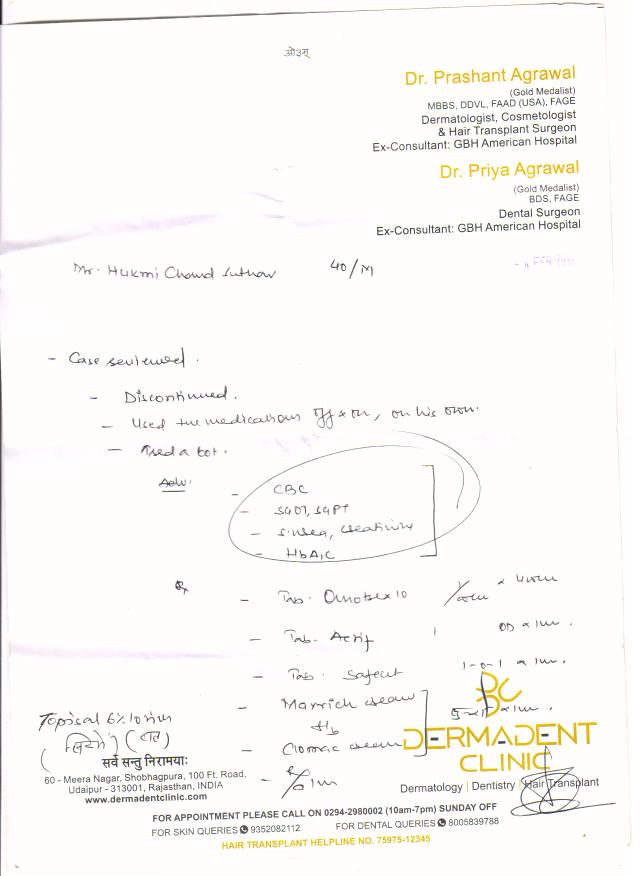 ओ३म्
Dr. Prashant Agrawal
(Gold Medalist)
MBBS, DDVL, FAAD (USA), FAGE
Dermatologist, Cosmetologist
& Hair Transplant Surgeon
Ex-Consultant: GBH American Hospital
Dr. Priya Agrawal
(Gold Medalist)
BDS, FAGE
Dental Surgeon
Ex-Consultant: GBH American Hospital
Mr. Hukmi Chand Suthar 40/M
- Case reviewed.
- Discontinued.
- Used the medications off & on, on his own.
- Used a lot.
Adv:
- CBC
- SGOT, SGPT
- S. urea, creatinine
- HbA1C
Rx
- Tab.
- Tab. OD x 1m.
- Tab. 1-0-1 x 1m.
- cream
- cream
Topisal 6%
सर्वे सन्तु निरामयाः
DERMADENT
CLINIC
60 - Meera Nagar, Shobhagpura, 100 Ft. Road,
Udaipur - 313001, Rajasthan, INDIA
www.dermadentclinic.com
Dermatology | Dentistry | Hair Transplant
FOR APPOINTMENT PLEASE CALL ON 0294-2980002 (10am-7pm) SUNDAY OFF
FOR SKIN QUERIES 9352082112 FOR DENTAL QUERIES 8005839788
HAIR TRANSPLANT HELPLINE NO. 75975-12345